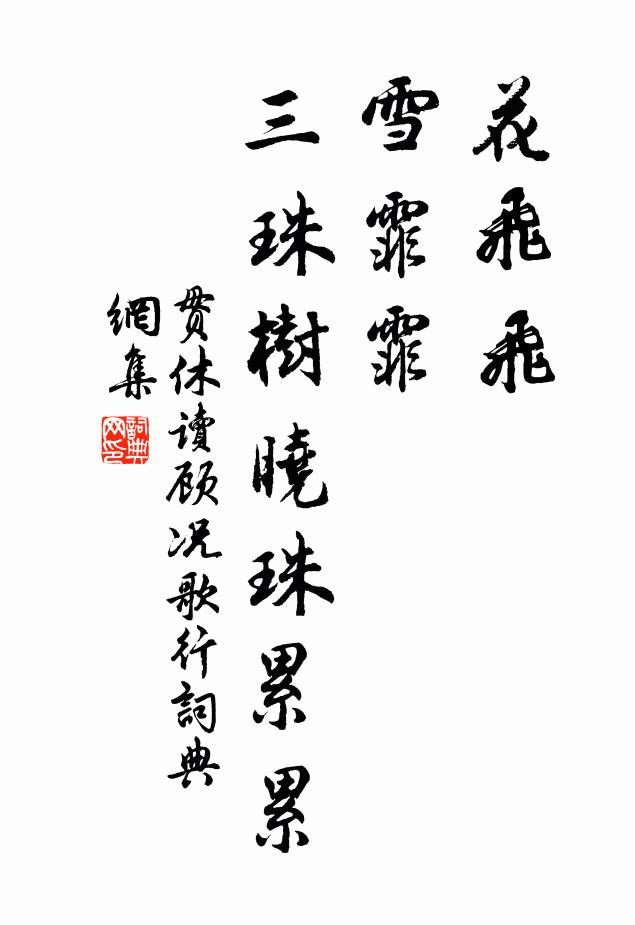 花飛飛
雪霏霏
三珠樹曉珠累累
贯休讀顾况歌行詞典
網集
詞典
网印